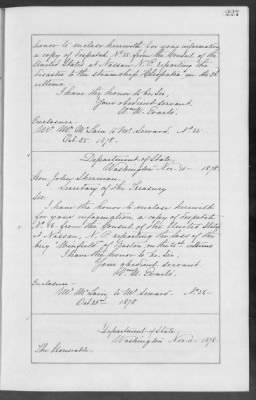 227
honor to enclose herewith for your information
a copy of Despatch No. 25 from the Consul of the
United States at Nassau N. P. reporting the
disaster to the steamship Cleopatra on the 22d
ultimo.
I have the honor to be, Sir,
Your obedient servant,
Wm M. Evarts.
Enclosure:
Mr. McLain to Mr. Seward. No 25
Oct. 25 1878.
Department of State,
Washington Nov. 1878.
Hon. John Sherman,
Secretary of the Treasury
Sir:
I have the honor to enclose herewith
for your information, a copy of despatch
No. 26 from the Consul of the United States
at Nassau, N. P. reporting the loss of the
brig of Boston, on the ultimo
I have the honor to be, Sir,
Your obedient servant,
Wm M. Evarts.
Enclosure:
Mr. McLain to Mr. Seward No 26
Oct 25th 1878
Department of State,
Washington Nov. 11 1878.
The Honorable